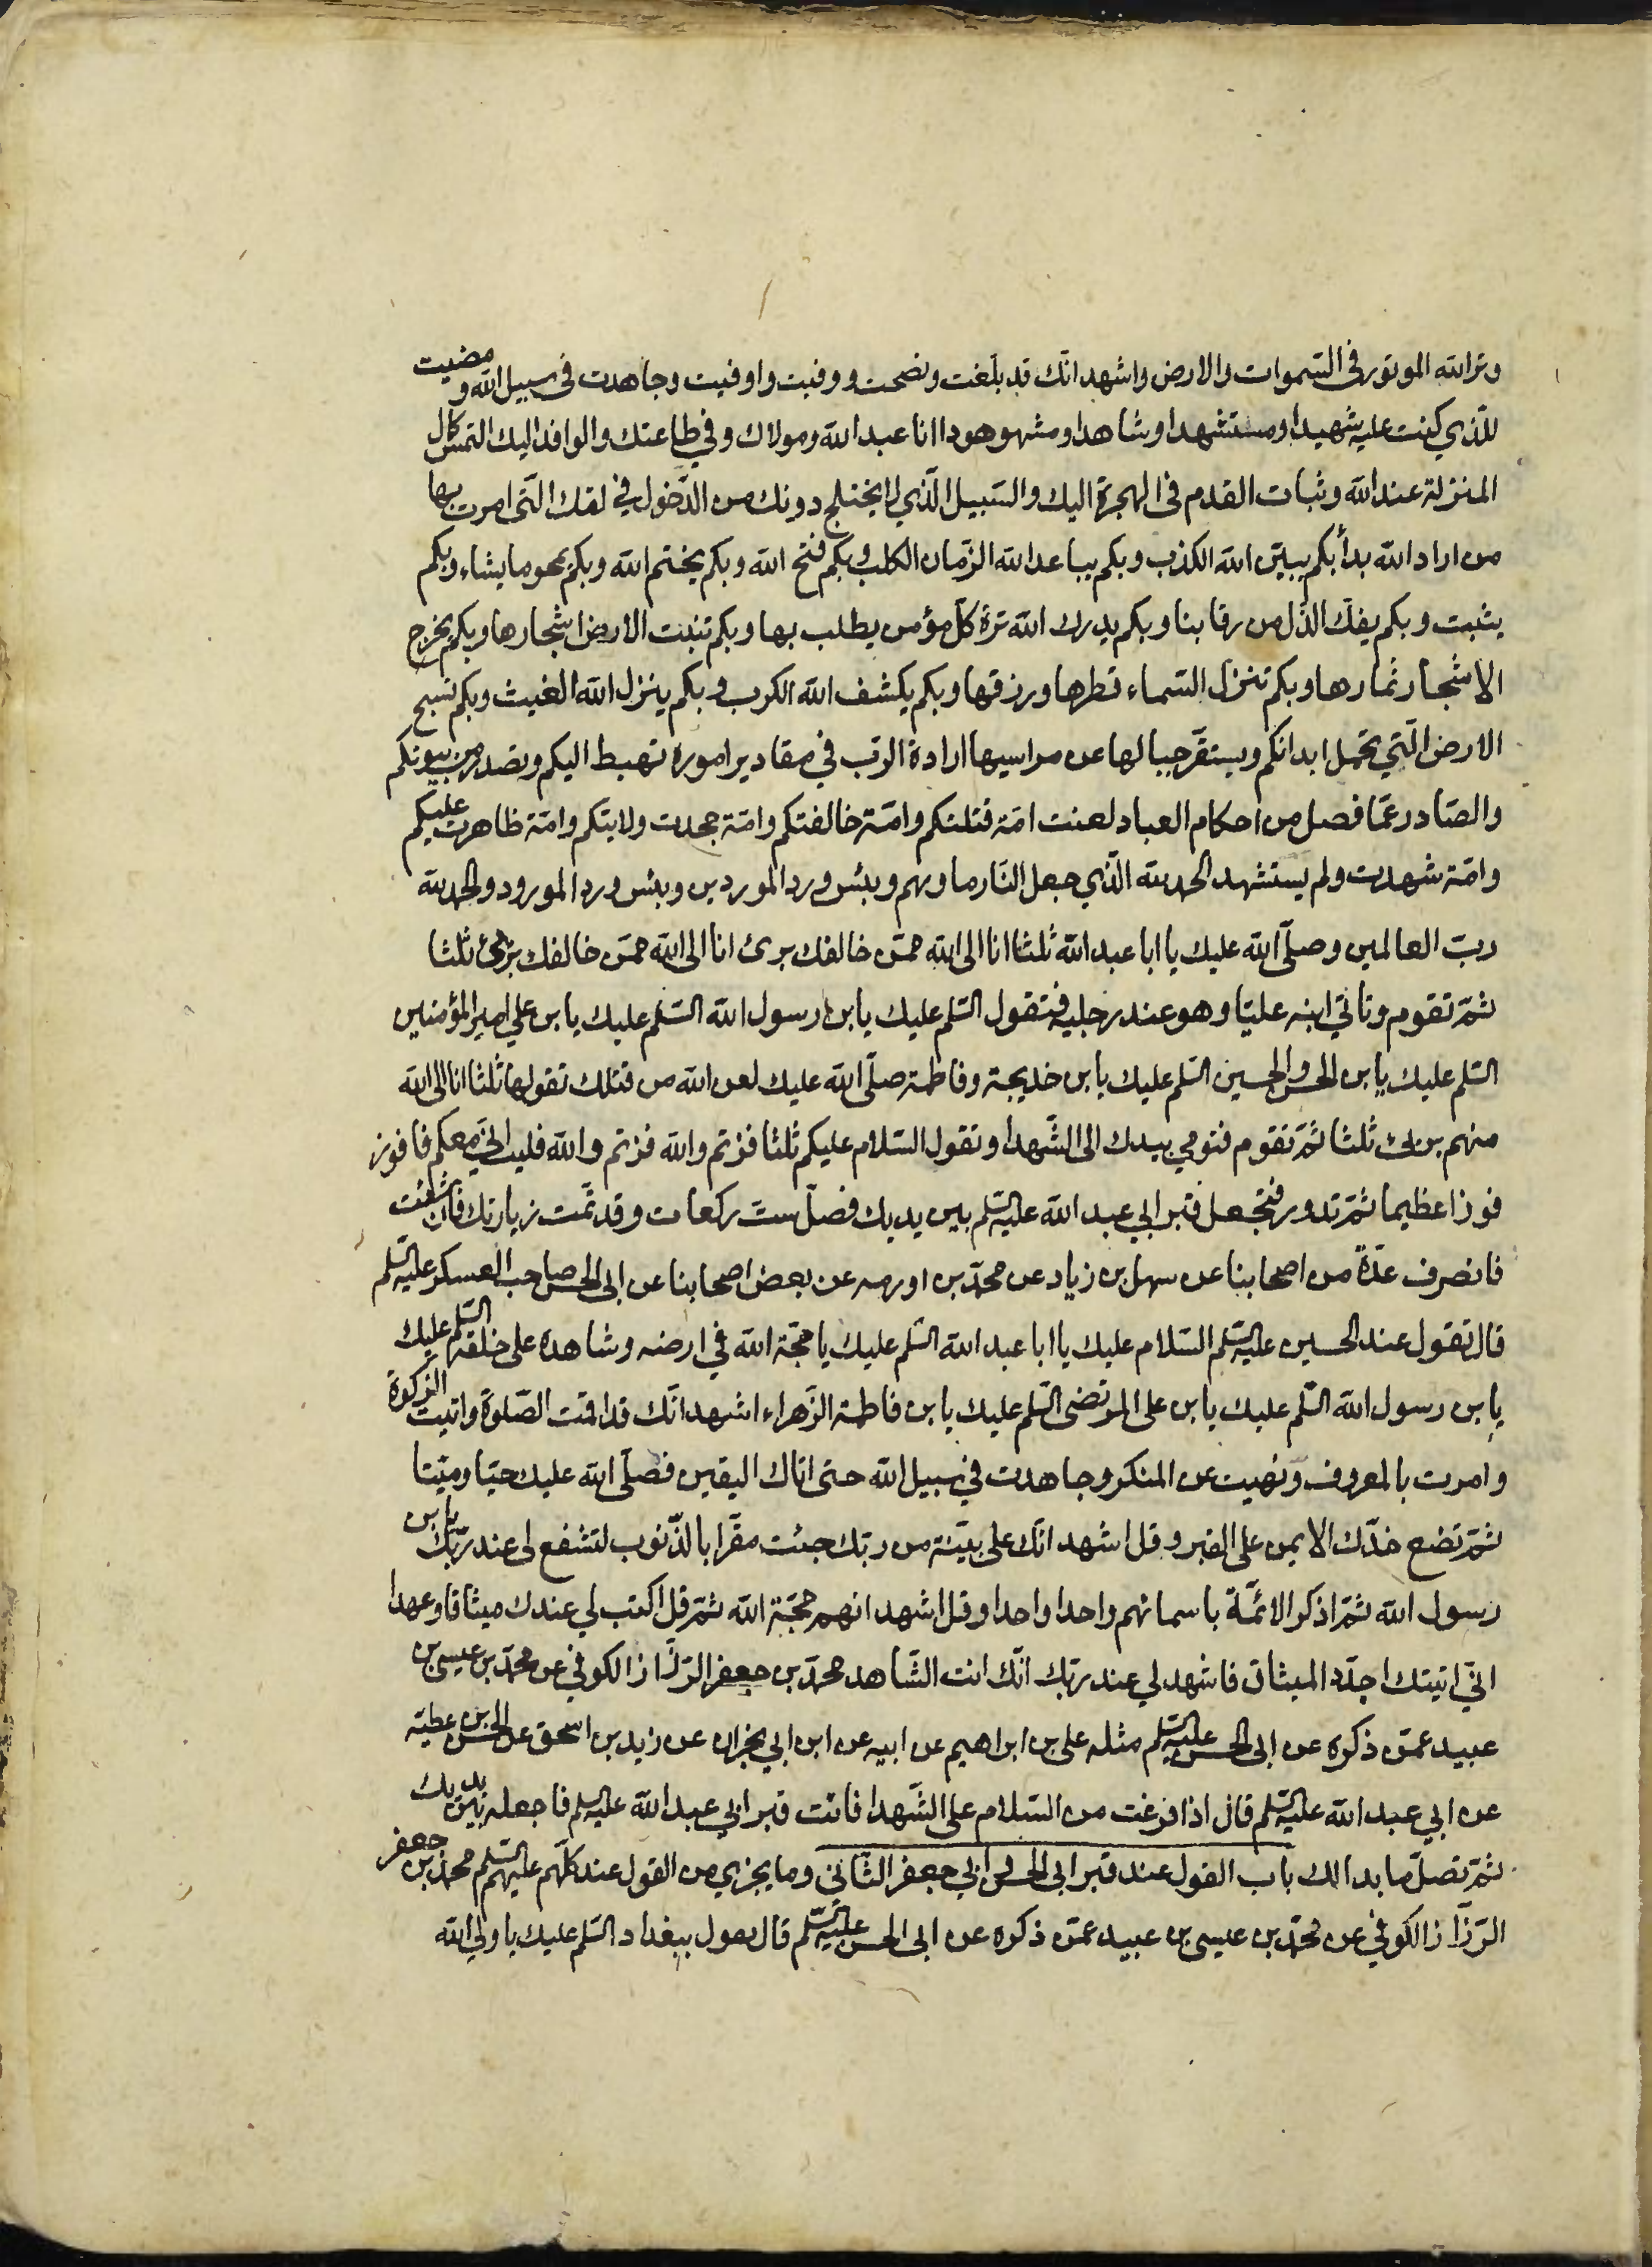 وتر الله الموتور في السموات والارض واشهد انّك قد بلّغت ونصحت ووفيت واوفيت وجاهدت في سبيل الله و مضيت
للّذي كنت عليه شهيدا ومستشهدا وشاهدا ومشهوهودا انا عبد الله ومولاك وفي طاعتك والوافد اليك التمس كمال
المنزلة عند الله وثبات القدم في الهجرة اليك والسّبيل الّذي لا يختلج دونك من الدّخول في لفك الّتي امرت بها
من اراد الله بدأ بكم بكم يبيّن الله الكذب وبكم يباعد الله الزّمان الكلب وبكم فتح الله وبكم يختم الله وبكم يمحو ما يشاء وبكم
يثبت وبكم يفكّ الذّل من رقابنا وبكم يدرك الله ترة كلّ مؤمن يطلب بها وبكم تنبت الارض اشجارها وبكم يخرج
الاشجار ثمارها وبكم تنزل السّماء قطرها ورزقها وبكم يكشف الله الكرب وبكم ينزل الله الغيث وبكم تسبح
الارض الّتي تحمل ابدانكم ويستقرّ جبالها عن مراسيها ارادة الرّب في مقادير اموره تهبط اليكم وتصدر من بيوتكم
والصّادر عمّا فصل من احكام العباد لعنت امّة قتلتكم وامّة خالفتكم وامّة جحدت ولايتكم وامّة ظاهرت عليكم
وامّة شهدت ولم يستشهد الحمد لله الّذي جعل النّار ماويهم وبئس ورد الموردين وبئس ورد المورود والحمد لله
ربّ العالمين وصلّى الله عليك يا ابا عبد الله ثلثا انا الى الله ممّن خالفك برئ انا الى الله ممّن خالفك برئ ثلثا
ثمّ تقوم وتاتي ابنه عليّا وهو عند رجليه فتقول السّلم عليك يا بن رسول الله السّلم عليك يا بن علي امير المؤمنين
السّلم عليك يا بن الحسن والحسين السّلم عليك يا بن خديجة وفاطمة صلّى الله عليك لعن الله من قتلك تقولها ثلثا انا الى الله
منهم برئ ثلثا ثمّ تقوم فتومي بيدك الى الشّهدا وتقول السّلام عليكم ثلثا فزتم والله فزتم والله فليت انّي معكم فافوز
فوزا عظيما ثمّ تدور فتجعل قبر ابي عبد الله عليه السّلم بين يديك فصلّ ستّ ركعات وقد تمّت زيارتك فان شئت
فانصرف عدّة من اصحابنا عن سهل بن زياد عن محمّد بن اورمه عن بعض اصحابنا عن ابى الحسن صاحب العسكر عليه السّلم
قال تقول عند الحسين عليه السّلم السّلام عليك يا ابا عبد الله السّلم عليك يا حجّة الله في ارضه وشاهده على خلقه السّلم عليك
يا بن رسول الله السّلم عليك يا بن على المرتضى السّلم عليك يا بن فاطمة الزّهراء اشهد انّك قد اقمت الصّلوة واتيت الزّكوة
وامرت بالمعروف ونهيت عن المنكر وجاهدت في سبيل الله حتى اتاك اليقين فصلّى الله عليك حيّا وميّتا
ثمّ تضع خدّك الايمن على القبر وقل اشهد انّك على بيّنة من ربّك جئت مقرّا بالذّنوب لتشفع لى عند ربّك يا بن
رسول الله ثمّ اذكر الائمّة باسمائهم واحدا واحدا وقل اشهد انهم حجّة الله ثمّ قل اكتب لي عندك ميثاقا وعهدا
انّي اتيتك اجدّد الميثاق فاشهد لي عند ربّك انّك انت الشّاهد محمّد بن جعفر الرّزّاز الكوفي عن محمّد بن عيسى بن
عبيد عمّن ذكره عن ابى الحسن عليه السّلم مثله على بن ابراهيم عن ابيه عن ابن ابي نجران عن زيد بن اسحق عن الحسن بن عطيّه
عن ابي عبد الله عليه السّلم قال اذا فرغت من السّلام على الشّهدا فائت قبر ابي عبد الله عليه السلم فاجعله بين يديك
ثمّ تصلّ ما بدا لك باب القول عند قبر ابى الحسن وابي جعفر الثّاني وما يجزي من القول عند كلّهم عليهم السّلم محمّد بن جعفر
الرّزّاز الكوفي عن محمّد بن عيسى بن عبيد عمّن ذكره عن ابى الحسن عليه السّلم قال تقول ببغداد السّلم عليك يا ولي الله